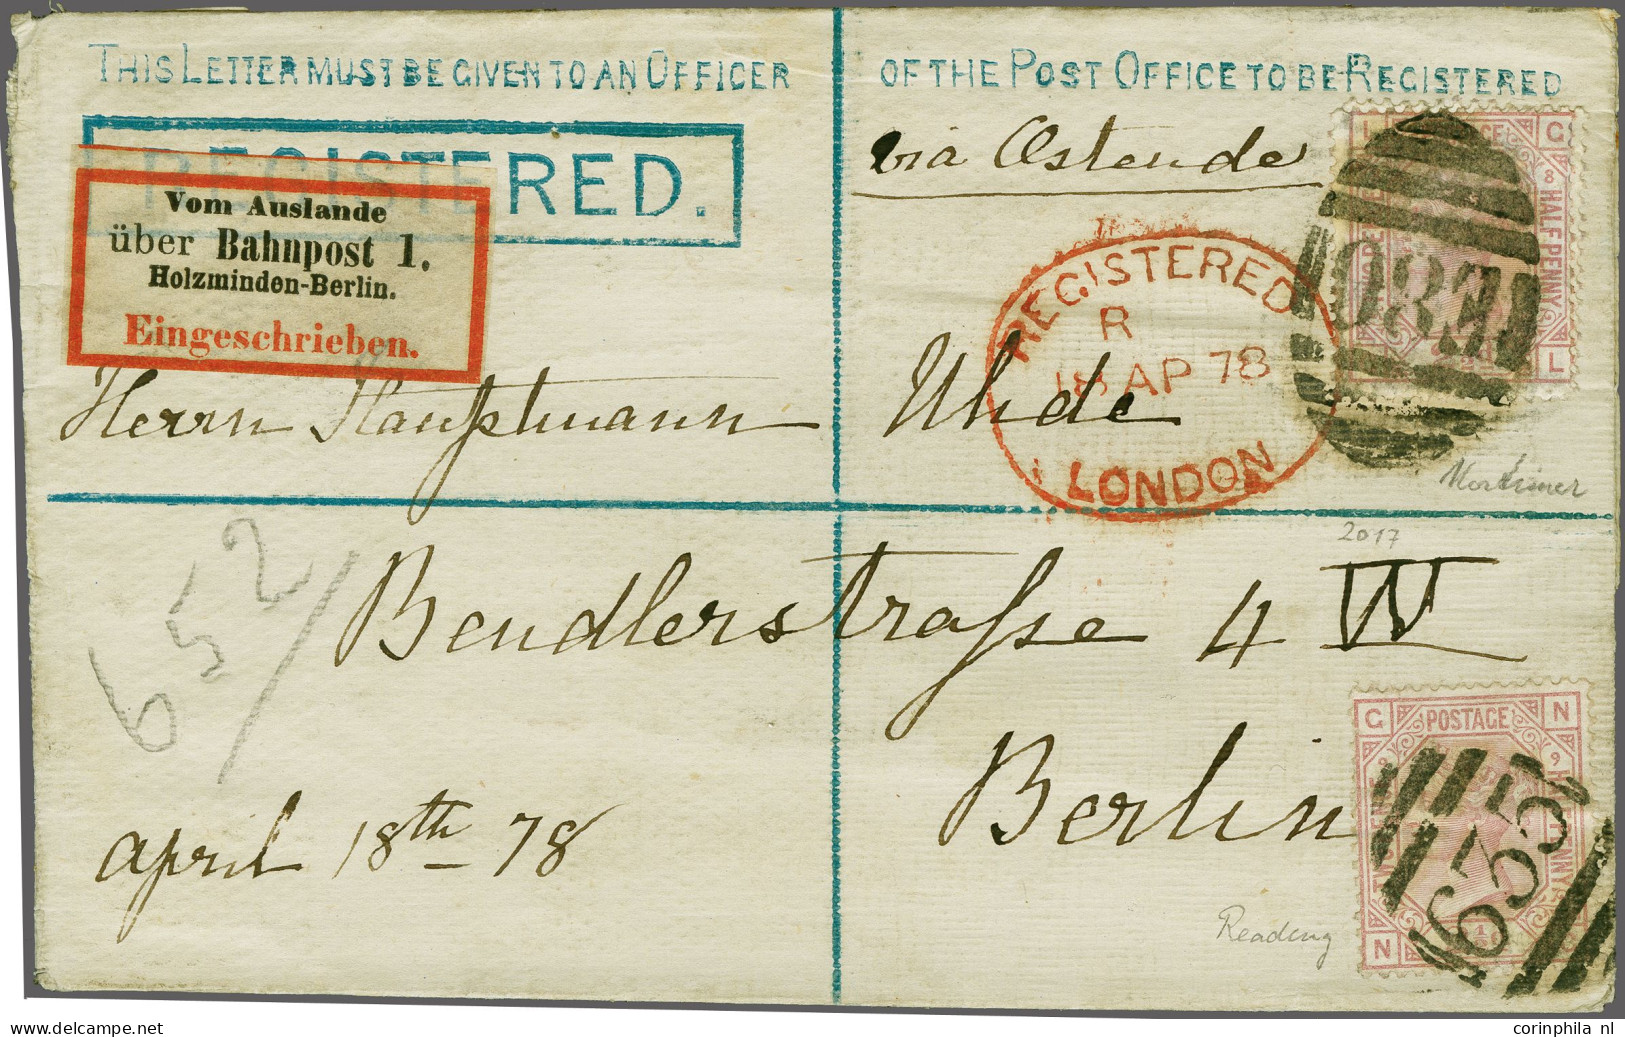 THIS LETTER MUST BE GIVEN TO AN OFFICER OF THE POST OFFICE TO BE REGISTERED
REGISTERED.
via Ostende
Vom Auslande
über Bahnpost 1.
Holzminden-Berlin.
Eingeschrieben.
REGISTERED
R
18 AP 78
LONDON
G
8
HALF PENNY
L
Herrn Hauptmann Uhde
Mortimer
2017
652
Bendlerstraße 4 W
Berlin
G POSTAGE N
9
N
635
Reading
april 18th 78
corinphila nl